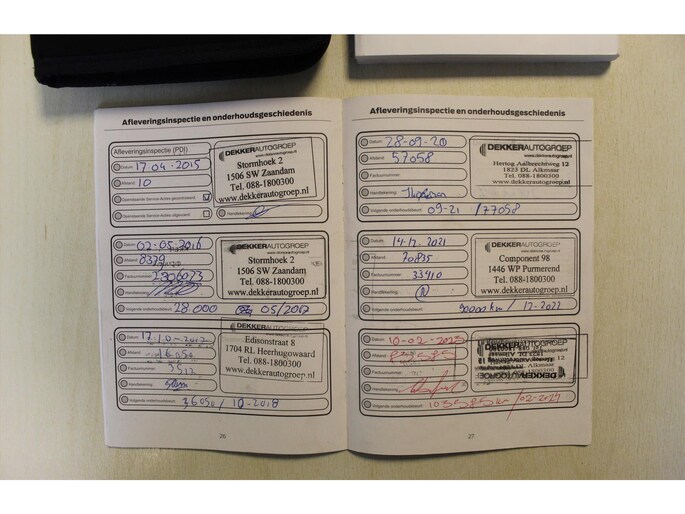 Afleveringsinspectie en onderhoudsgeschiedenis
Afleveringsinspectie (PDI)
Datum: 17-04-2015
Afstand: 10
Openstaande Service Acties gecontroleerd
Openstaande Service Acties uitgevoerd
Handtekening:
DEKKERAUTOGROEP
Stormhoek 2
1506 SW Zaandam
Tel. 088-1800300
www.dekkerautogroep.nl
Datum: 02-05-2016
Afstand: 8379
Factuurnummer:
Handtekening:
Volgende onderhoudsbeurt: 28.000 05/2017
DEKKERAUTOGROEP
Stormhoek 2
1506 SW Zaandam
Tel. 088-1800300
www.dekkerautogroep.nl
Datum:
Afstand: 16050
Factuurnummer:
Handtekening:
Volgende onderhoudsbeurt: 36050 / 10-2018
DEKKERAUTOGROEP
Edisonstraat 8
1704 RL Heerhugowaard
Tel. 088-1800300
www.dekkerautogroep.nl
26
Afleveringsinspectie en onderhoudsgeschiedenis
Datum: 28-09-20
Afstand: 57058
Factuurnummer:
Handtekening:
Volgende onderhoudsbeurt: 09-21 / 77058
DEKKERAUTOGROEP
Hertog Aalbrechtweg 12
1823 DL Alkmaar
Tel. 088-1800300
www.dekkerautogroep.nl
Datum: 14-12-2021
Afstand: 70.835
Factuurnummer: 33410
Handtekening:
Volgende onderhoudsbeurt: 90000km / 12-2022
DEKKERAUTOGROEP
Component 98
1446 WP Purmerend
Tel. 088-1800300
www.dekkerautogroep.nl
Datum: 10-02-2023
Afstand:
Factuurnummer:
Handtekening:
Volgende onderhoudsbeurt: 103585km / 02-2024
27